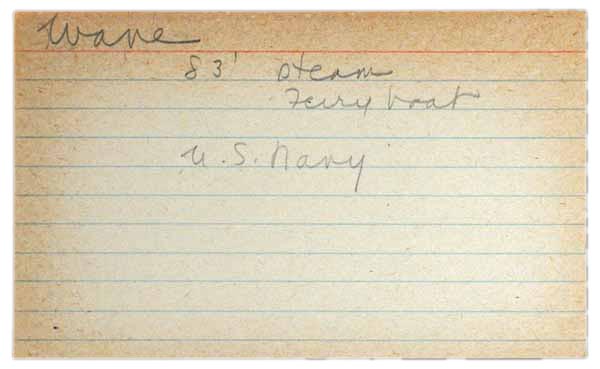 Wave
83' steam
Ferry boat
U.S. Navy